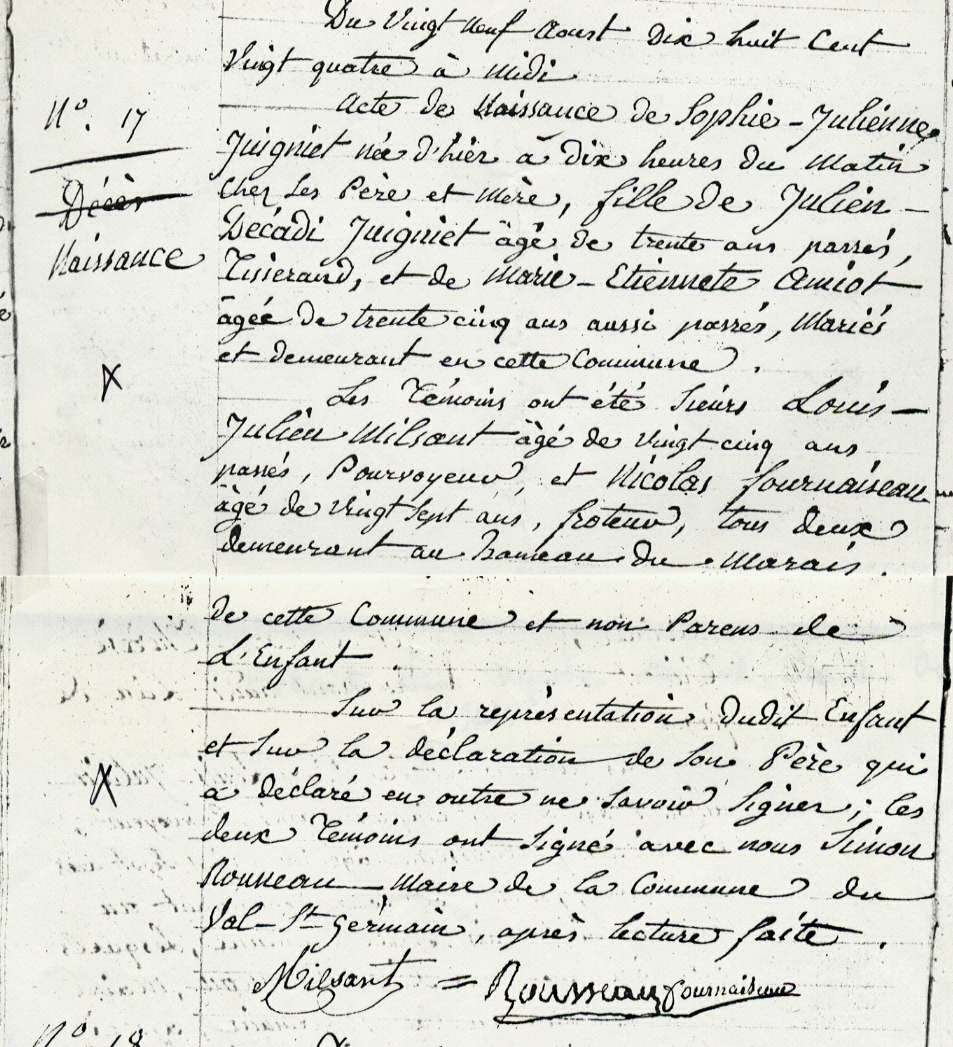 Du Vingt Neuf Aoust Dix huit Cent
Vingt quatre à Midi
N.o 17
Décès
Naissance
Acte de Naissance de Sophie-Julienne
Juigniet née d'hier à dix heures du Matin
Chez Les Père et Mère, fille de Julien-
Décadi Juigniet âgé de trente ans passés,
Tisserand, et de Marie-Etiennete Amiot
âgée de trente cinq ans aussi passés, Mariés
et demeurant en cette Commune.
Les Témoins ont été Sieurs Louis-
Julien Milsant âgé de Vingt cinq ans
passés, Pourvoyeur, et Nicolas fournaiseau
âgé de Vingt Sept ans, froteur, tous deux
demeurant au hameau du Marais.
de cette Commune et non Parens de
L'Enfant.
Sur la représentation dudit Enfant
et Sur la déclaration de Son Père qui
a déclaré en outre ne Savoir Signer; les
deux Témoins ont Signé avec nous Simon
Rousseau Maire de la Commune du
Val-St Germain, après lecture faite.
Milsant = Rousseau fournaiseau
N.o 18